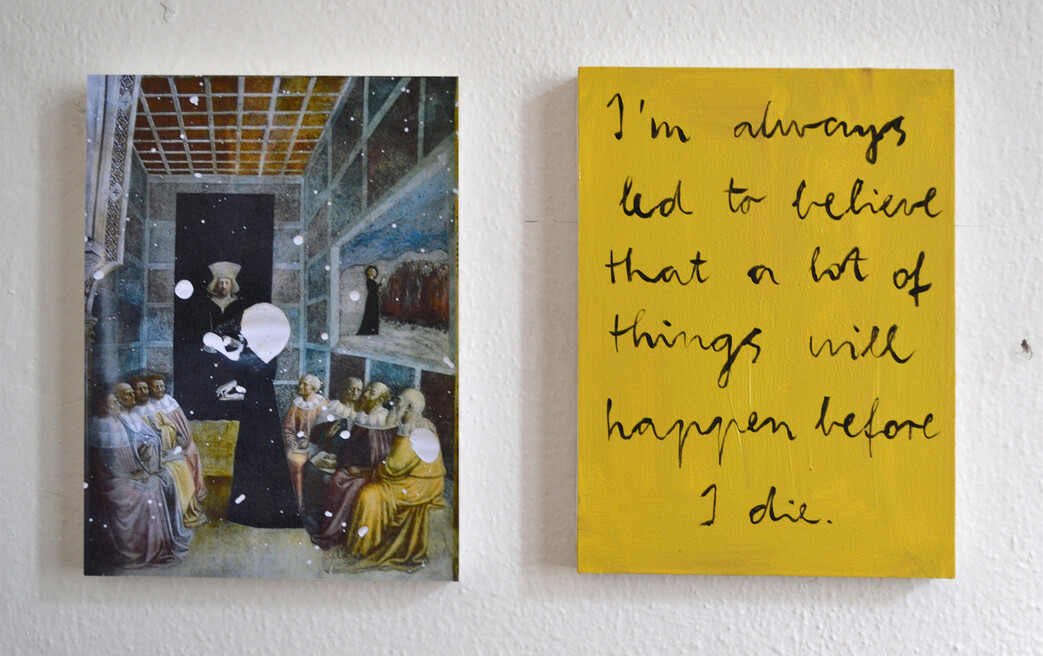 I'm always
led to believe
that a lot of
things will
happen before
I die.